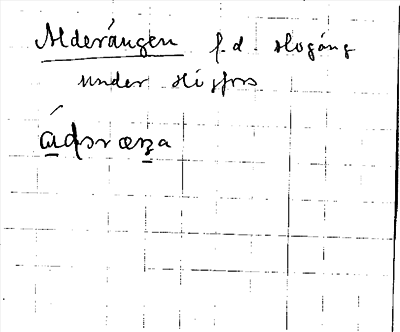 Alderängen f.d. slogäng
under Hisfors
á̱dɔræṉa